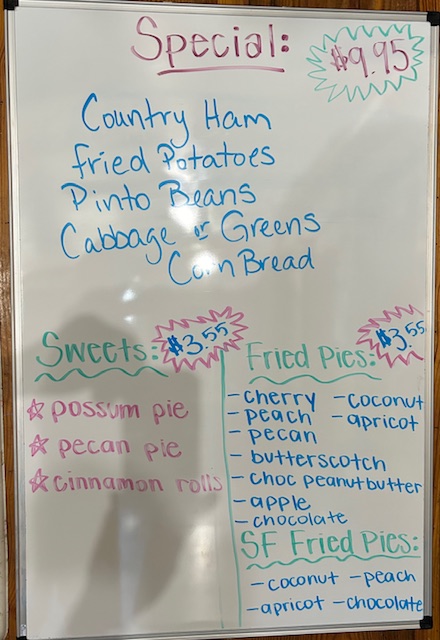 Special:
$9.95
Country Ham
Fried Potatoes
Pinto Beans
Cabbage or Greens
Corn Bread
Sweets: $3.55
☆ possum pie
☆ pecan pie
☆ cinnamon rolls
Fried Pies: $3.55
- cherry - coconut
- peach - apricot
- pecan
- butterscotch
- choc peanutbutter
- apple
- chocolate
SF Fried Pies:
- coconut - peach
- apricot - chocolate